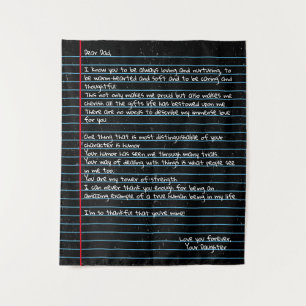 Dear Dad,
I know you to be always loving and nurturing, to
be warm-hearted and soft and to be caring and
thoughtful
This not only makes me proud but also makes me
cherish all the gifts life has bestowed upon me
There are no words to describe my immense love
for you
One thing that is most distinguishable of your
character is humor
Your humor has seen me through many trials.
Your way of dealing with things is what people see
in me too.
You are my tower of strength
I can never thank you enough for being an
amazing example of a true human being in my life
I'm so thankful that you're mine!
Love you forever,
Your Daughter